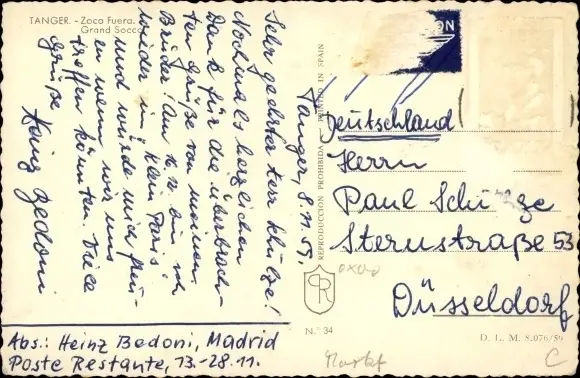 TANGER. - Zoco Fuera.
Grand Socco
Tanger, 8.11.59.
Sehr geehrter Herr Schütze!
Nochmals herzlichen
Dank für die überbrach-
ten Grüße von meinem
Bruder. Am 16.12. bin ich
wieder in "Klein Paris"
und würde mich freu-
en wenn wir uns
treffen könnten. Viele
Grüße
Heinz Bedoni
Abs.: Heinz Bedoni, Madrid
Poste Restante, 13.-28.11.
REPRODUCCION PROHIBIDA — PRINTED IN SPAIN
ON
Deutschland
Herrn
Paul Schütze
Sternstraße 53
Düsseldorf
CPR
N.° 34
D. L. M. 8.076/59
Markt
C